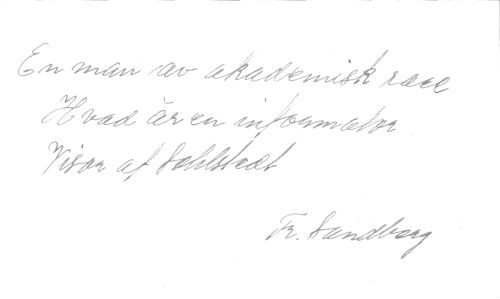 En man av akademisk race
Hvad är en informator
Visor af Sehlstedt
Fr. Sandberg